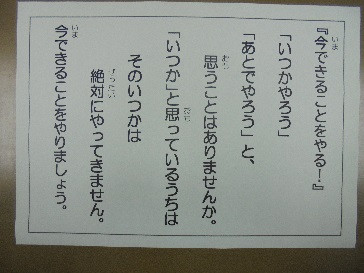 『今できることをやる！』
「いつかやろう」
「あとでやろう」と、
思うことはありませんか。
「いつか」と思っているうちは
そのいつかは
絶対にやってきません。
今できることをやりましょう。